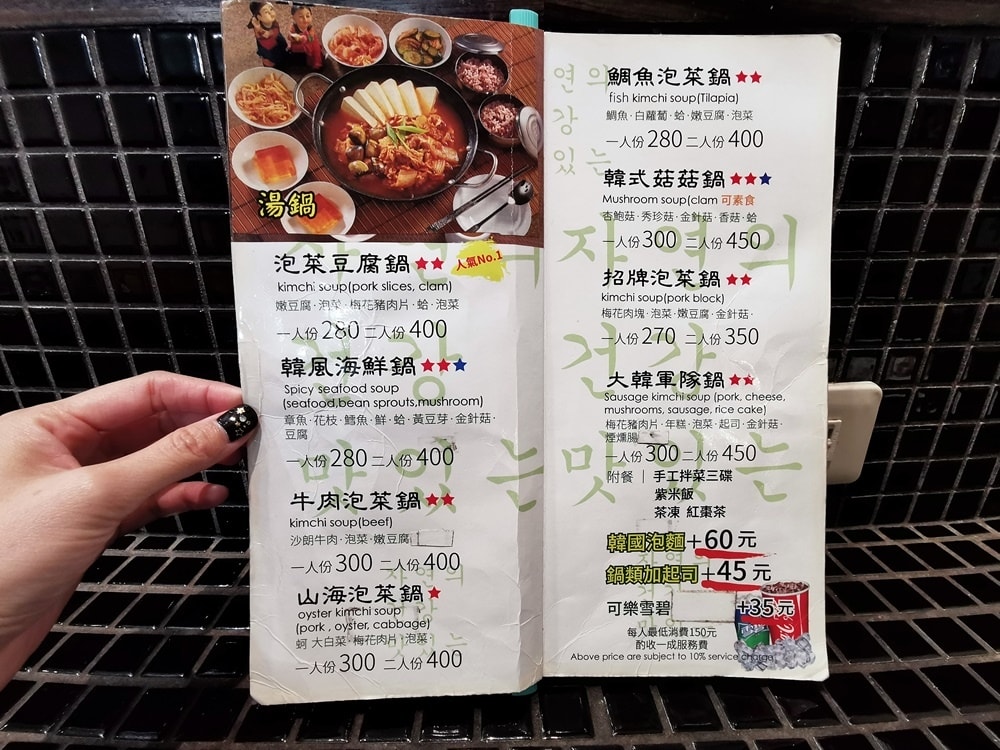 湯鍋
泡菜豆腐鍋★★ 人氣No.1
kimchi soup(pork slices, clam)
嫩豆腐·泡菜·梅花豬肉片·蛤·泡菜
一人份280 二人份400
韓風海鮮鍋★★★
Spicy seafood soup
(seafood,bean sprouts,mushroom)
章魚·花枝·鱈魚·鮮·蛤·黃豆芽·金針菇·
豆腐
一人份280 二人份400
牛肉泡菜鍋★★
kimchi soup(beef)
沙朗牛肉·泡菜·嫩豆腐
一人份300 二人份400
山海泡菜鍋★
oyster kimchi soup
(pork , oyster, cabbage)
蚵 大白菜·梅花肉片·泡菜·
一人份300 二人份400
연의
강
있는
鯛魚泡菜鍋★★
fish kimchi soup(Tilapia)
鯛魚·白蘿蔔·蛤·嫩豆腐·泡菜
一人份280 二人份400
韓式菇菇鍋★★★
Mushroom soup(clam 可素食
杏鮑菇·秀珍菇·金針菇·香菇·蛤
一人份300 二人份450
招牌泡菜鍋★★
kimchi soup(pork block)
梅花肉塊·泡菜·嫩豆腐·金針菇·
一人份270 二人份350
大韓軍隊鍋★★
Sausage kimchi soup (pork, cheese,
mushrooms, sausage, rice cake)
梅花豬肉片·年糕·泡菜·起司·金針菇·
煙燻腸
一人份300 二人份450
附餐｜手工拌菜三碟
紫米飯
茶凍 紅棗茶
韓國泡麵+60元
鍋類加起司+45元
可樂雪碧 +35元
每人最低消費150元
酌收一成服務費
Above price are subject to 10% service charge
자연의
건강
맛있는